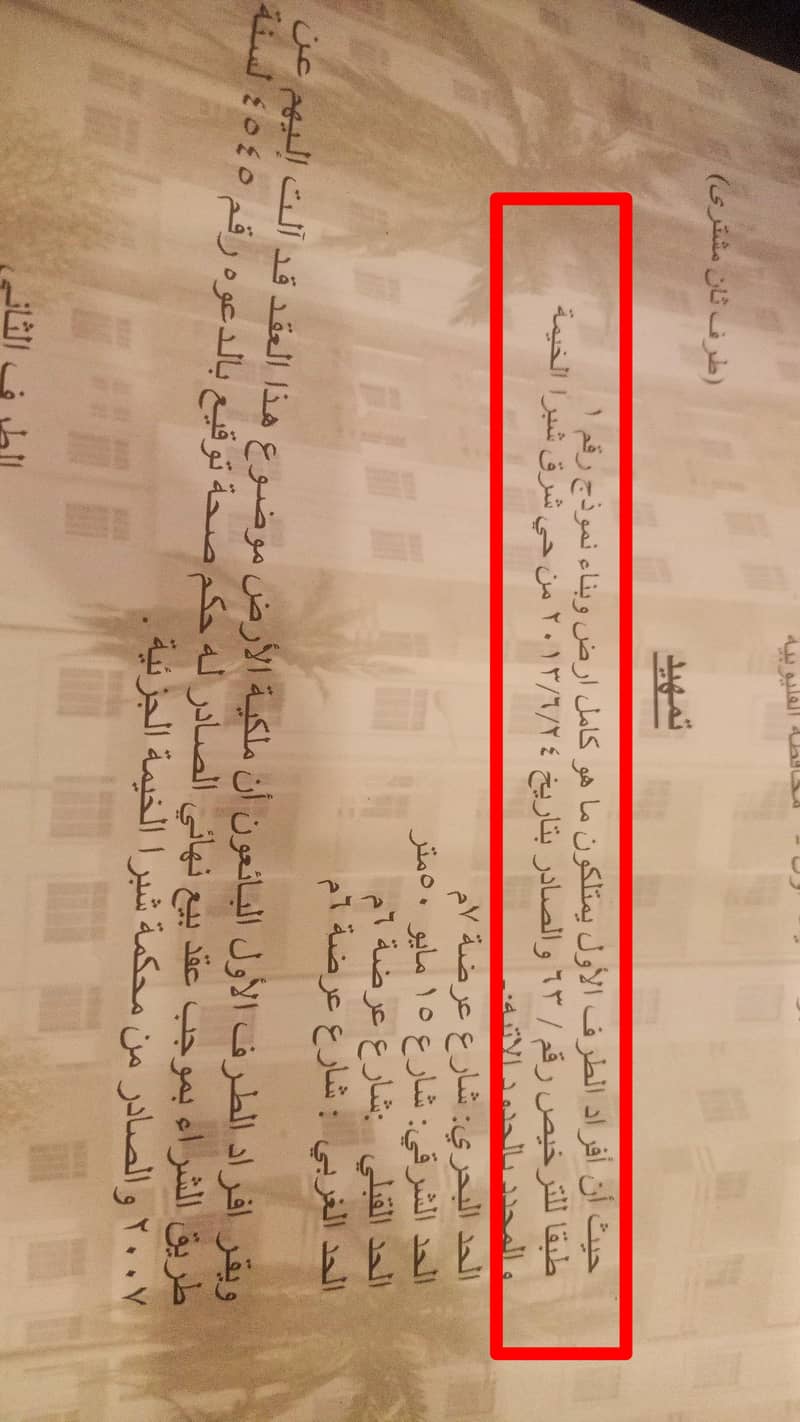 محافظة القليوبية
(طرف ثان مشترى)
تمهيد
حيث أن أفراد الطرف الأول يمتلكون ما هو كامل ارض وبناء نموذج رقم ١
طبقا للترخيص رقم / ٦٣ والصادر بتاريخ ٢٠١٣/٦/٢٤ من حي شرق شبرا الخيمة
والمحدد بالحدود الاتية:-
الحد البحري: شارع عرضة ٧م
الحد الشرقي: شارع ١٥ مايو ٥٠متر
الحد القبلي :شارع عرضة ٦م
الحد الغربي : شارع عرضة ٦م
ويقر افراد الطرف الأول البائعون أن ملكية الأرض موضوع هذا العقد قد آلت إليهم عن
طريق الشراء بموجب عقد بيع نهائي الصادر له حكم صحة توقيع بالدعوه رقم ٤٥٤٥ لسنة
٢٠٠٧ والصادر من محكمة شبرا الخيمة الجزئية .
الطرف الثاني